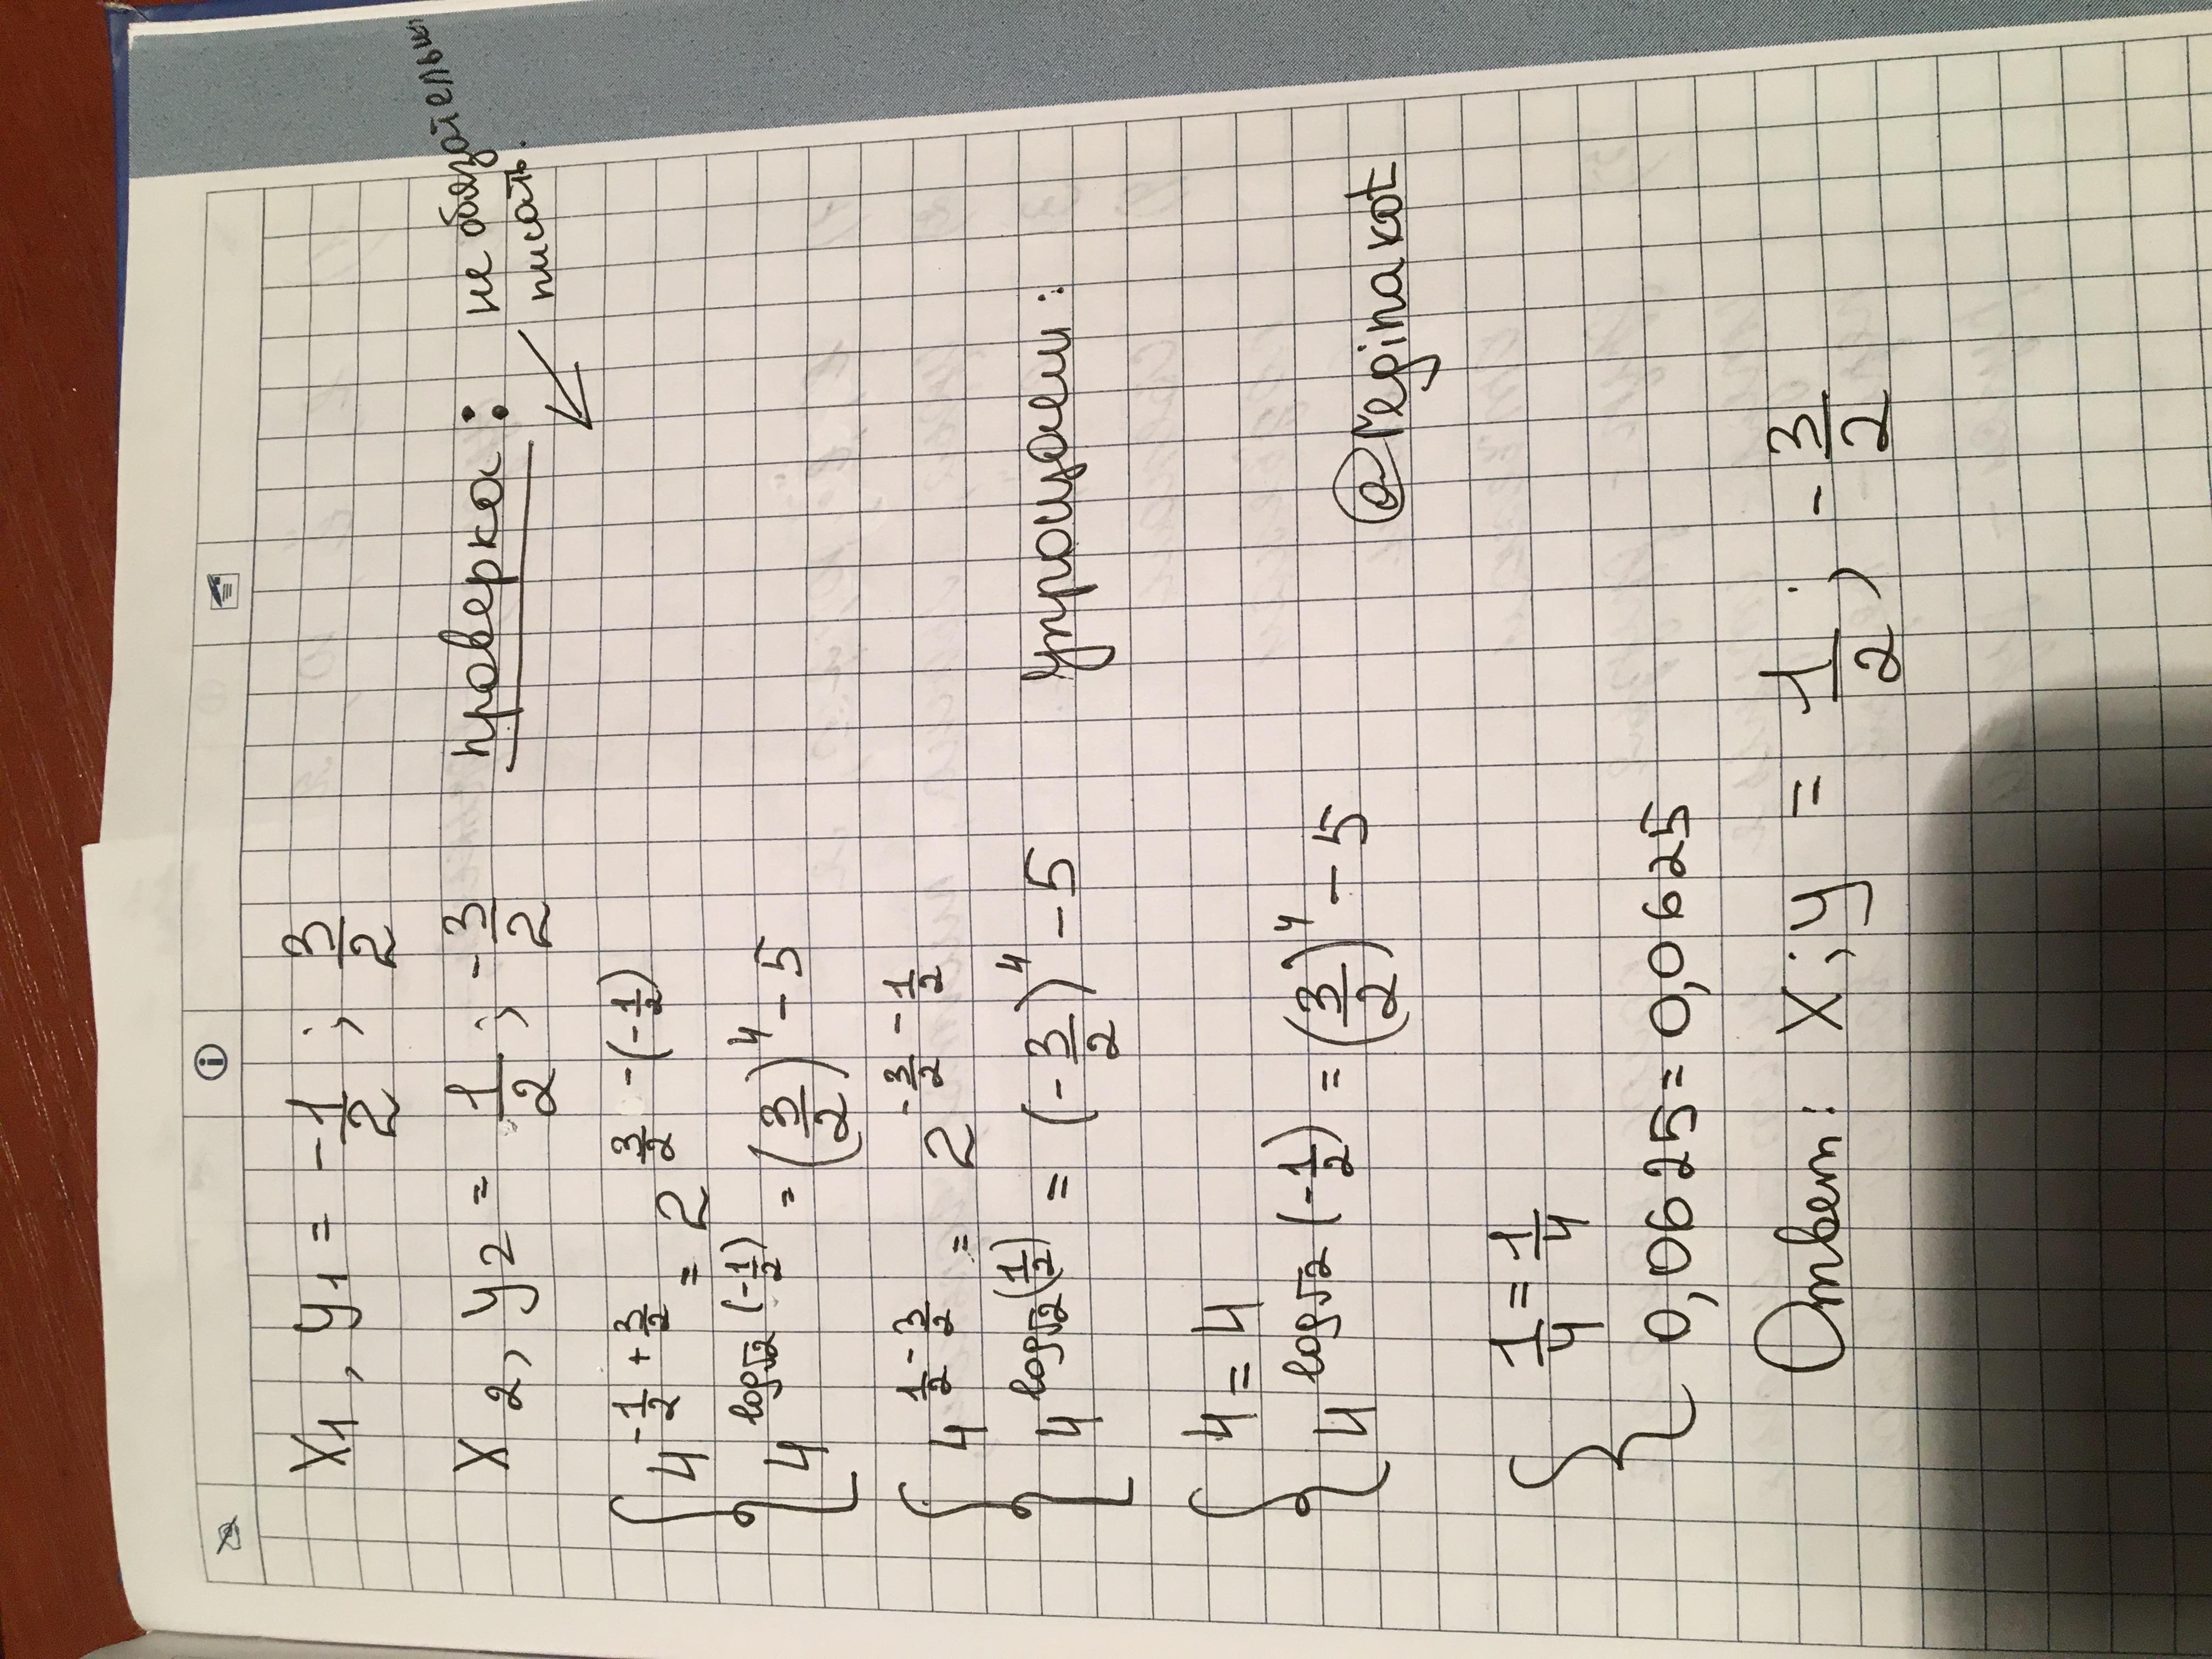 x₁, y₁ = -1/2 ; 3/2
x₂, y₂ = 1/2 ; -3/2
проверка:
не обязательно
писать.
{ 4^(-1/2 + 3/2) = 2^(3/2 - (-1/2))
4^(log√2 (-1/2)) = (3/2)^4 - 5
{ 4^(1/2 - 3/2) = 2^(-3/2 - 1/2)
4^(log√2 (1/2)) = (-3/2)^4 - 5
Упрощаем:
{ 4 = 4
4^(log√2 (-1/2)) = (3/2)^4 - 5
@reginakot
{ 1/4 = 1/4
0,0625 = 0,0625
Ответ: x;y = 1/2 ; -3/2